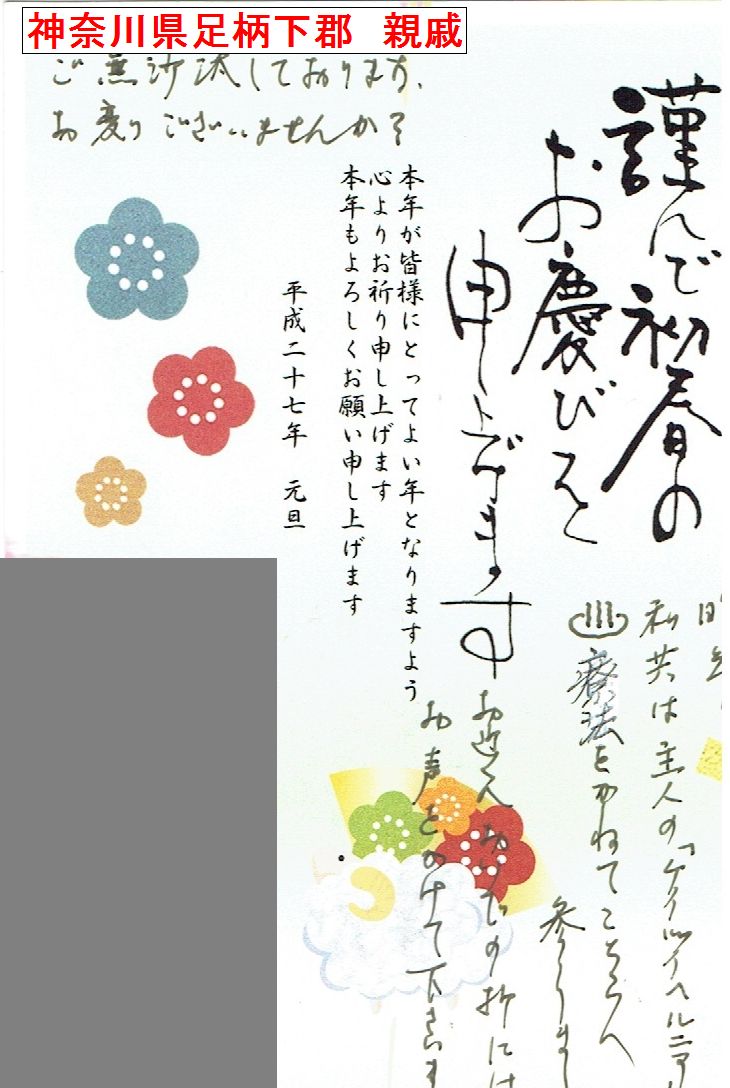 神奈川県足柄下郡　親戚
ご無沙汰しております、
お変りございませんか？
謹んで初春の
お慶びを
申し上げます
本年が皆様にとってよい年となりますよう
心よりお祈り申し上げます
本年もよろしくお願い申し上げます
平成二十七年　元旦
私共は主人の「ケイツイヘルニア
♨療法をかねてこちらへ
参りまし
お近くへお出での折には
お声をかけて下さいま